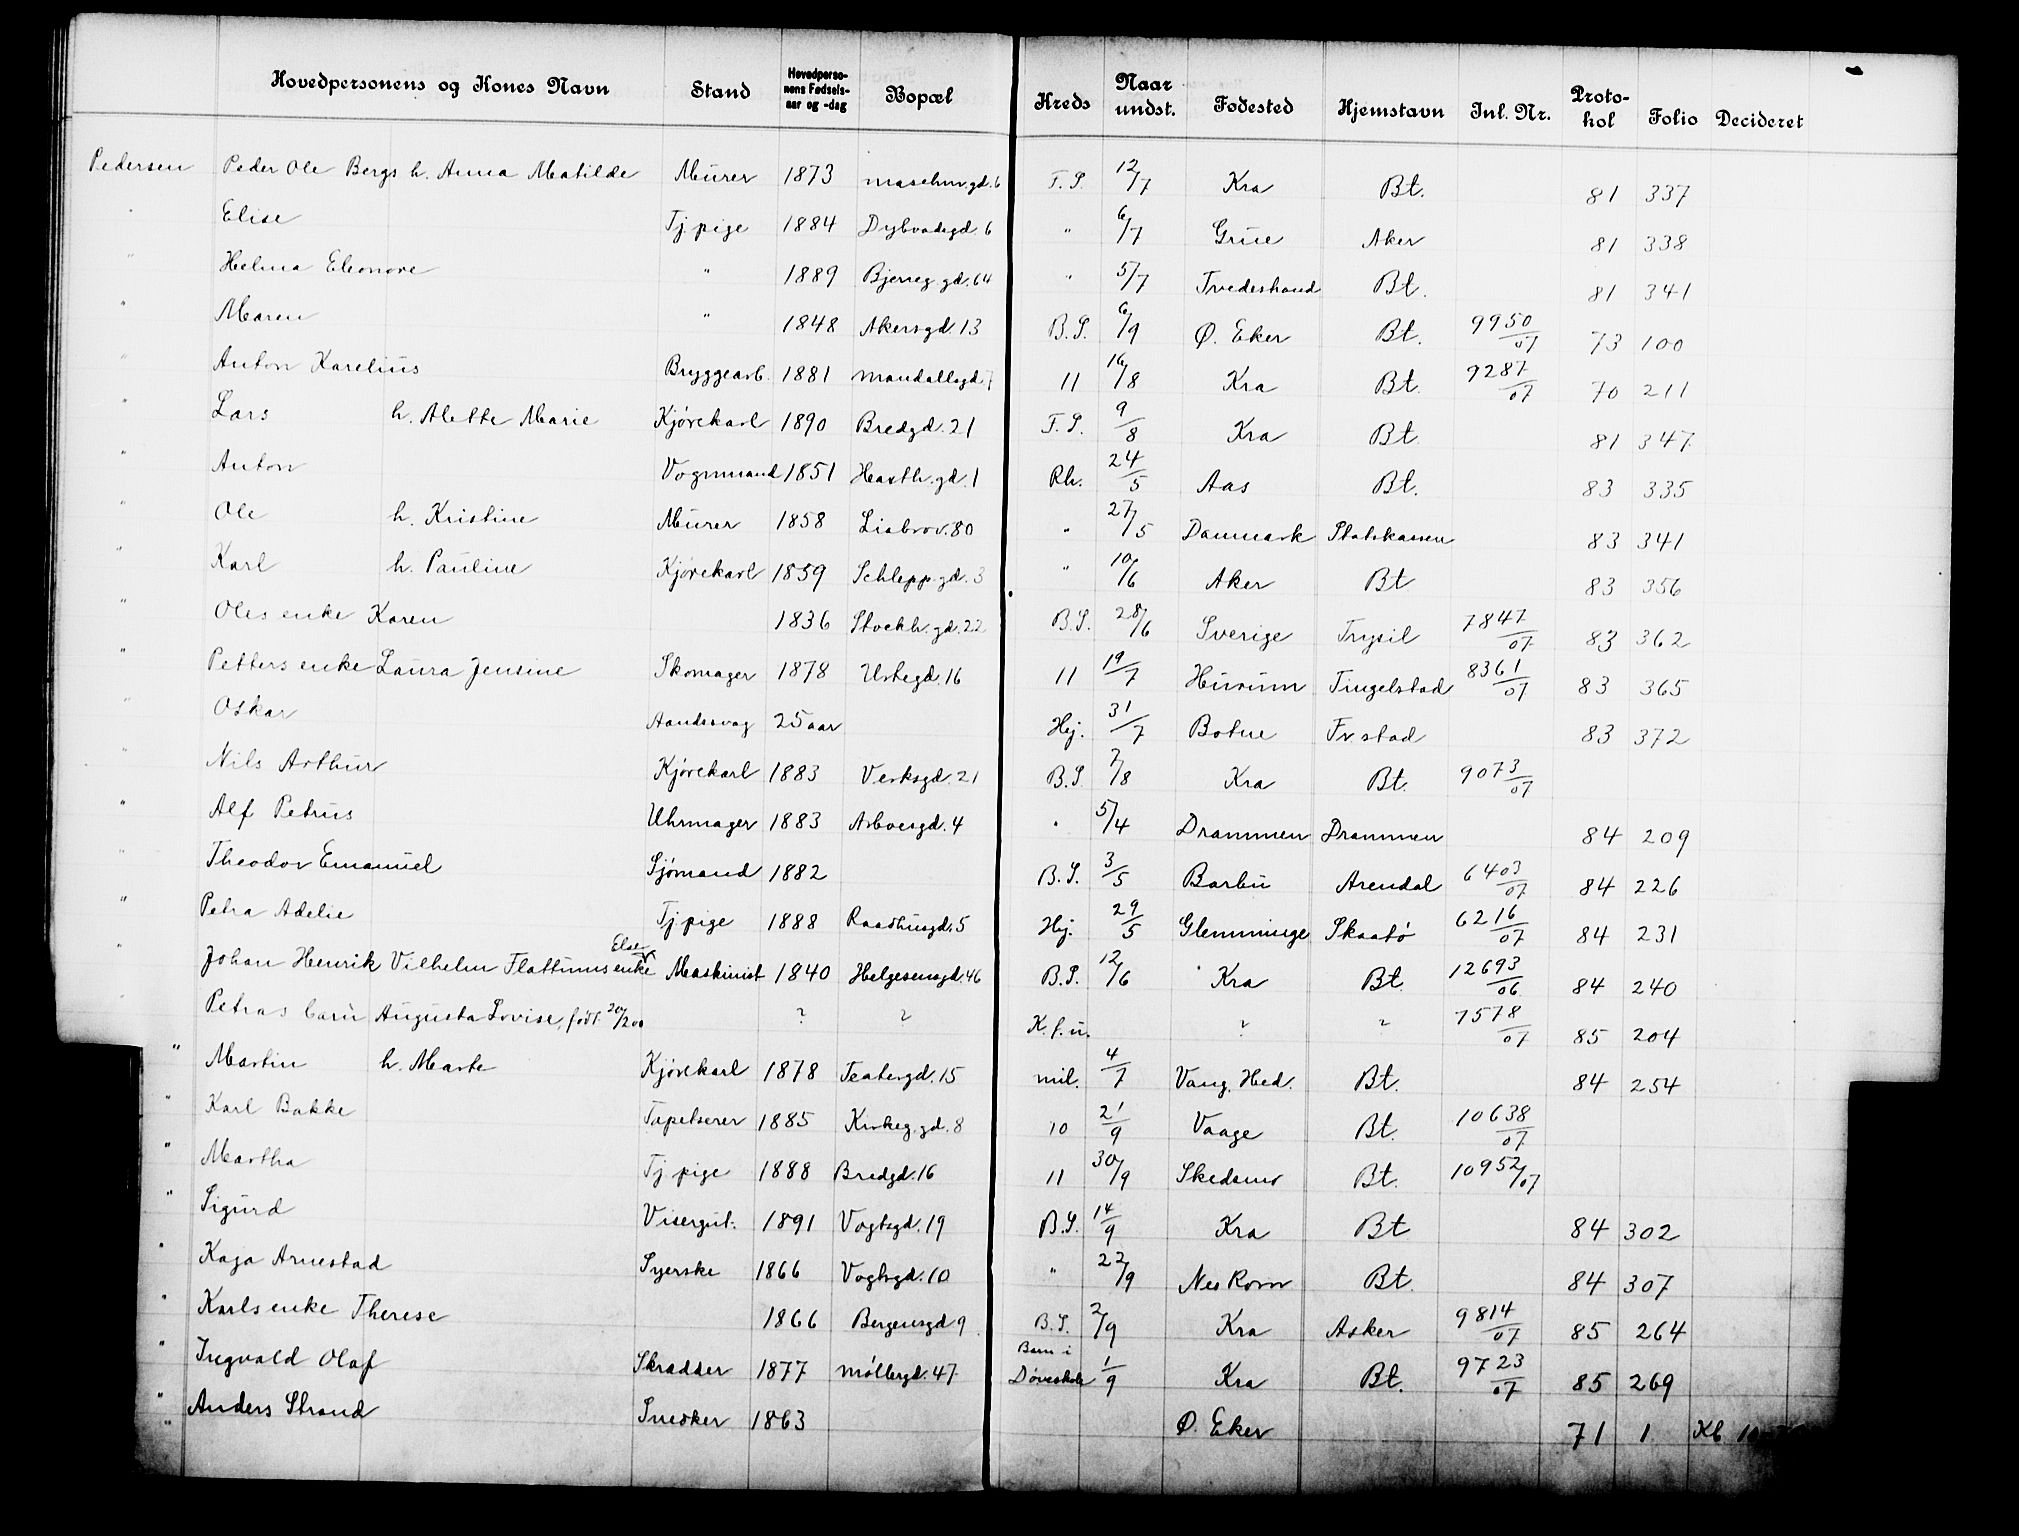 Hovedpersonens og Kones Navn Stand Hovedperso-nens Fødsels-aar og -dag Bopæl Kreds Naar undst. Fødested Hjemstavn Inl. Nr. Proto-kol Folio Decideret
Pedersen Peder Ole Bergs h. Anna Matilde Murer 1873 F.S. 12/7 Kra Bt. 81 337
" Elise Tj.pige 1884 Dybvadsgd. 6 " 6/7 Grue Aker 81 338
" Helma Eleonore " 1889 Bjerreg.gd. 64 " 5/7 Tvedestrand Bt. 81 341
" Maren " 1848 Akersgd 13 B.S. 6/9 Ø. Eker Bt. 9950/07 73 100
" Anton Karelius Bryggearb. 1881 Mandallsgd. 7 11 16/8 Kra Bt. 9287/07 70 211
" Lars h. Alette Marie Kjørekarl 1890 Bredgd. 21 F.S. 9/8 Kra Bt. 81 347
" Anton Vognmand 1851 Hasth.gd. 1 Rh. 24/5 Aas Bt. 83 335
" Ole h. Kristine Murer 1858 Liabrov. 80 " 27/5 Danmark Statskassen 83 341
" Karl h. Pauline Kjørekarl 1859 Schlepp.gd. 3 " 10/6 Aker Bt 83 356
" Oles enke Karen 1836 Stockh.gd. 22 B.S. 28/6 Sverige Trysil 7847/07 83 362
" Petters enke Laura Jensine Skomager 1878 Urtegd. 16 11 19/7 Hurum Tingelstad 8361/07 83 365
" Oskar Aandssvag 25 aar Hj. 31/7 Botne Fr.stad 83 372
" Nils Arthur Kjørekarl 1883 Verksgd. 21 B.S. 7/8 Kra Bt. 9073/07
" Alf Petrus Uhrmager 1883 Arboesgd. 4 " 5/4 Drammen Drammen 84 209
" Theodor Emanuel Sjømand 1882 B.S. 3/5 Barbu Arendal 6403/07 84 226
" Petra Adelie Tj.pige 1888 Raadhusgd. 5 Hj. 29/5 Glemminge Skaatø 6216/07 84 231
" Johan Henrik Vilhelm Flattums enke Else Maskinist 1840 Helgesensgd. 46 B.S. 12/6 Kra Bt. 12693/06 84 240
Petras barn Augusta Lovise, født 20/2 00 ? ? K.f.u. ? ? 7578/07 85 204
" Martin h. Marte Kjørekarl 1878 Teatergd. 15 mil. 4/7 Vang. Hed. Bt. 84 254
" Karl Bakke Tapetserer 1885 Kirkeg.gd. 8 10 21/9 Vaage Bt. 10638/07
" Martha Tj.pige 1888 Bredgd. 16 11 30/9 Skedsmo Bt. 10952/07
" Sigurd Visergut. 1891 Vogtsgd. 19 B.S. 14/9 Kra Bt 84 302
" Kaja Arnestad Syerske 1866 Vogtsgd. 10 " 22/9 Nes Rom. Bt. 84 307
" Karls enke Therese 1866 Bergensgd 9 B.S. 2/9 Kra Asker 9814/07 85 264
" Ingvald Olaf Skrædder 1877 Møllergd. 47 Barn i Døveskole 1/9 Kra Bt. 9723/07 85 269
" Anders Strand Snedker 1863 Ø. Eker 71 1 Kb.
"